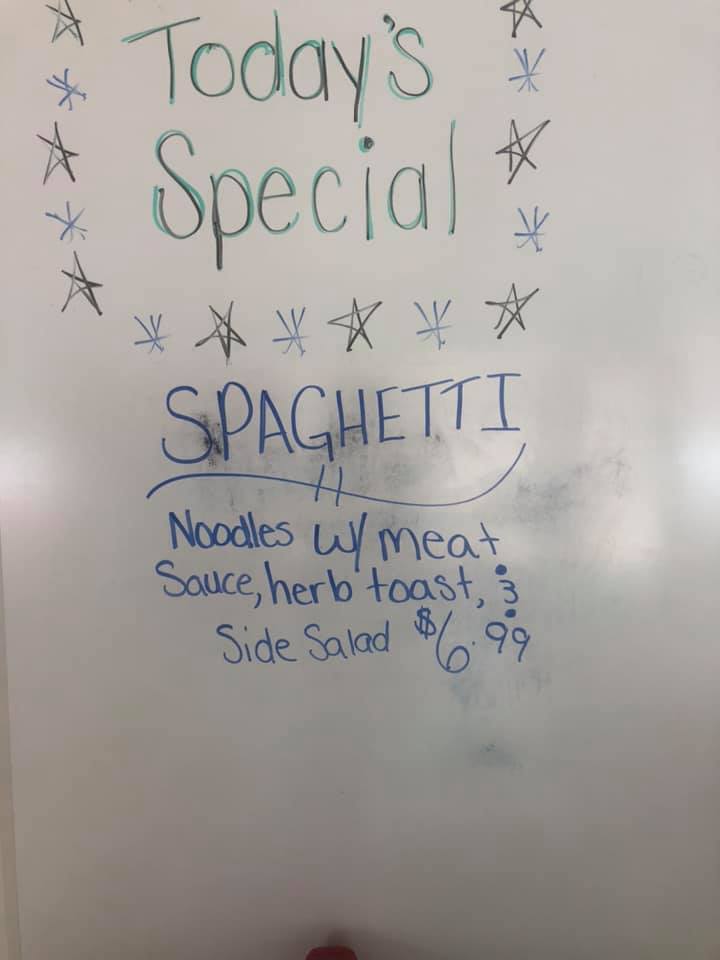 Today's
Special
SPAGHETTI
Noodles w/ meat
Sauce, herb toast, &
Side Salad $6.99